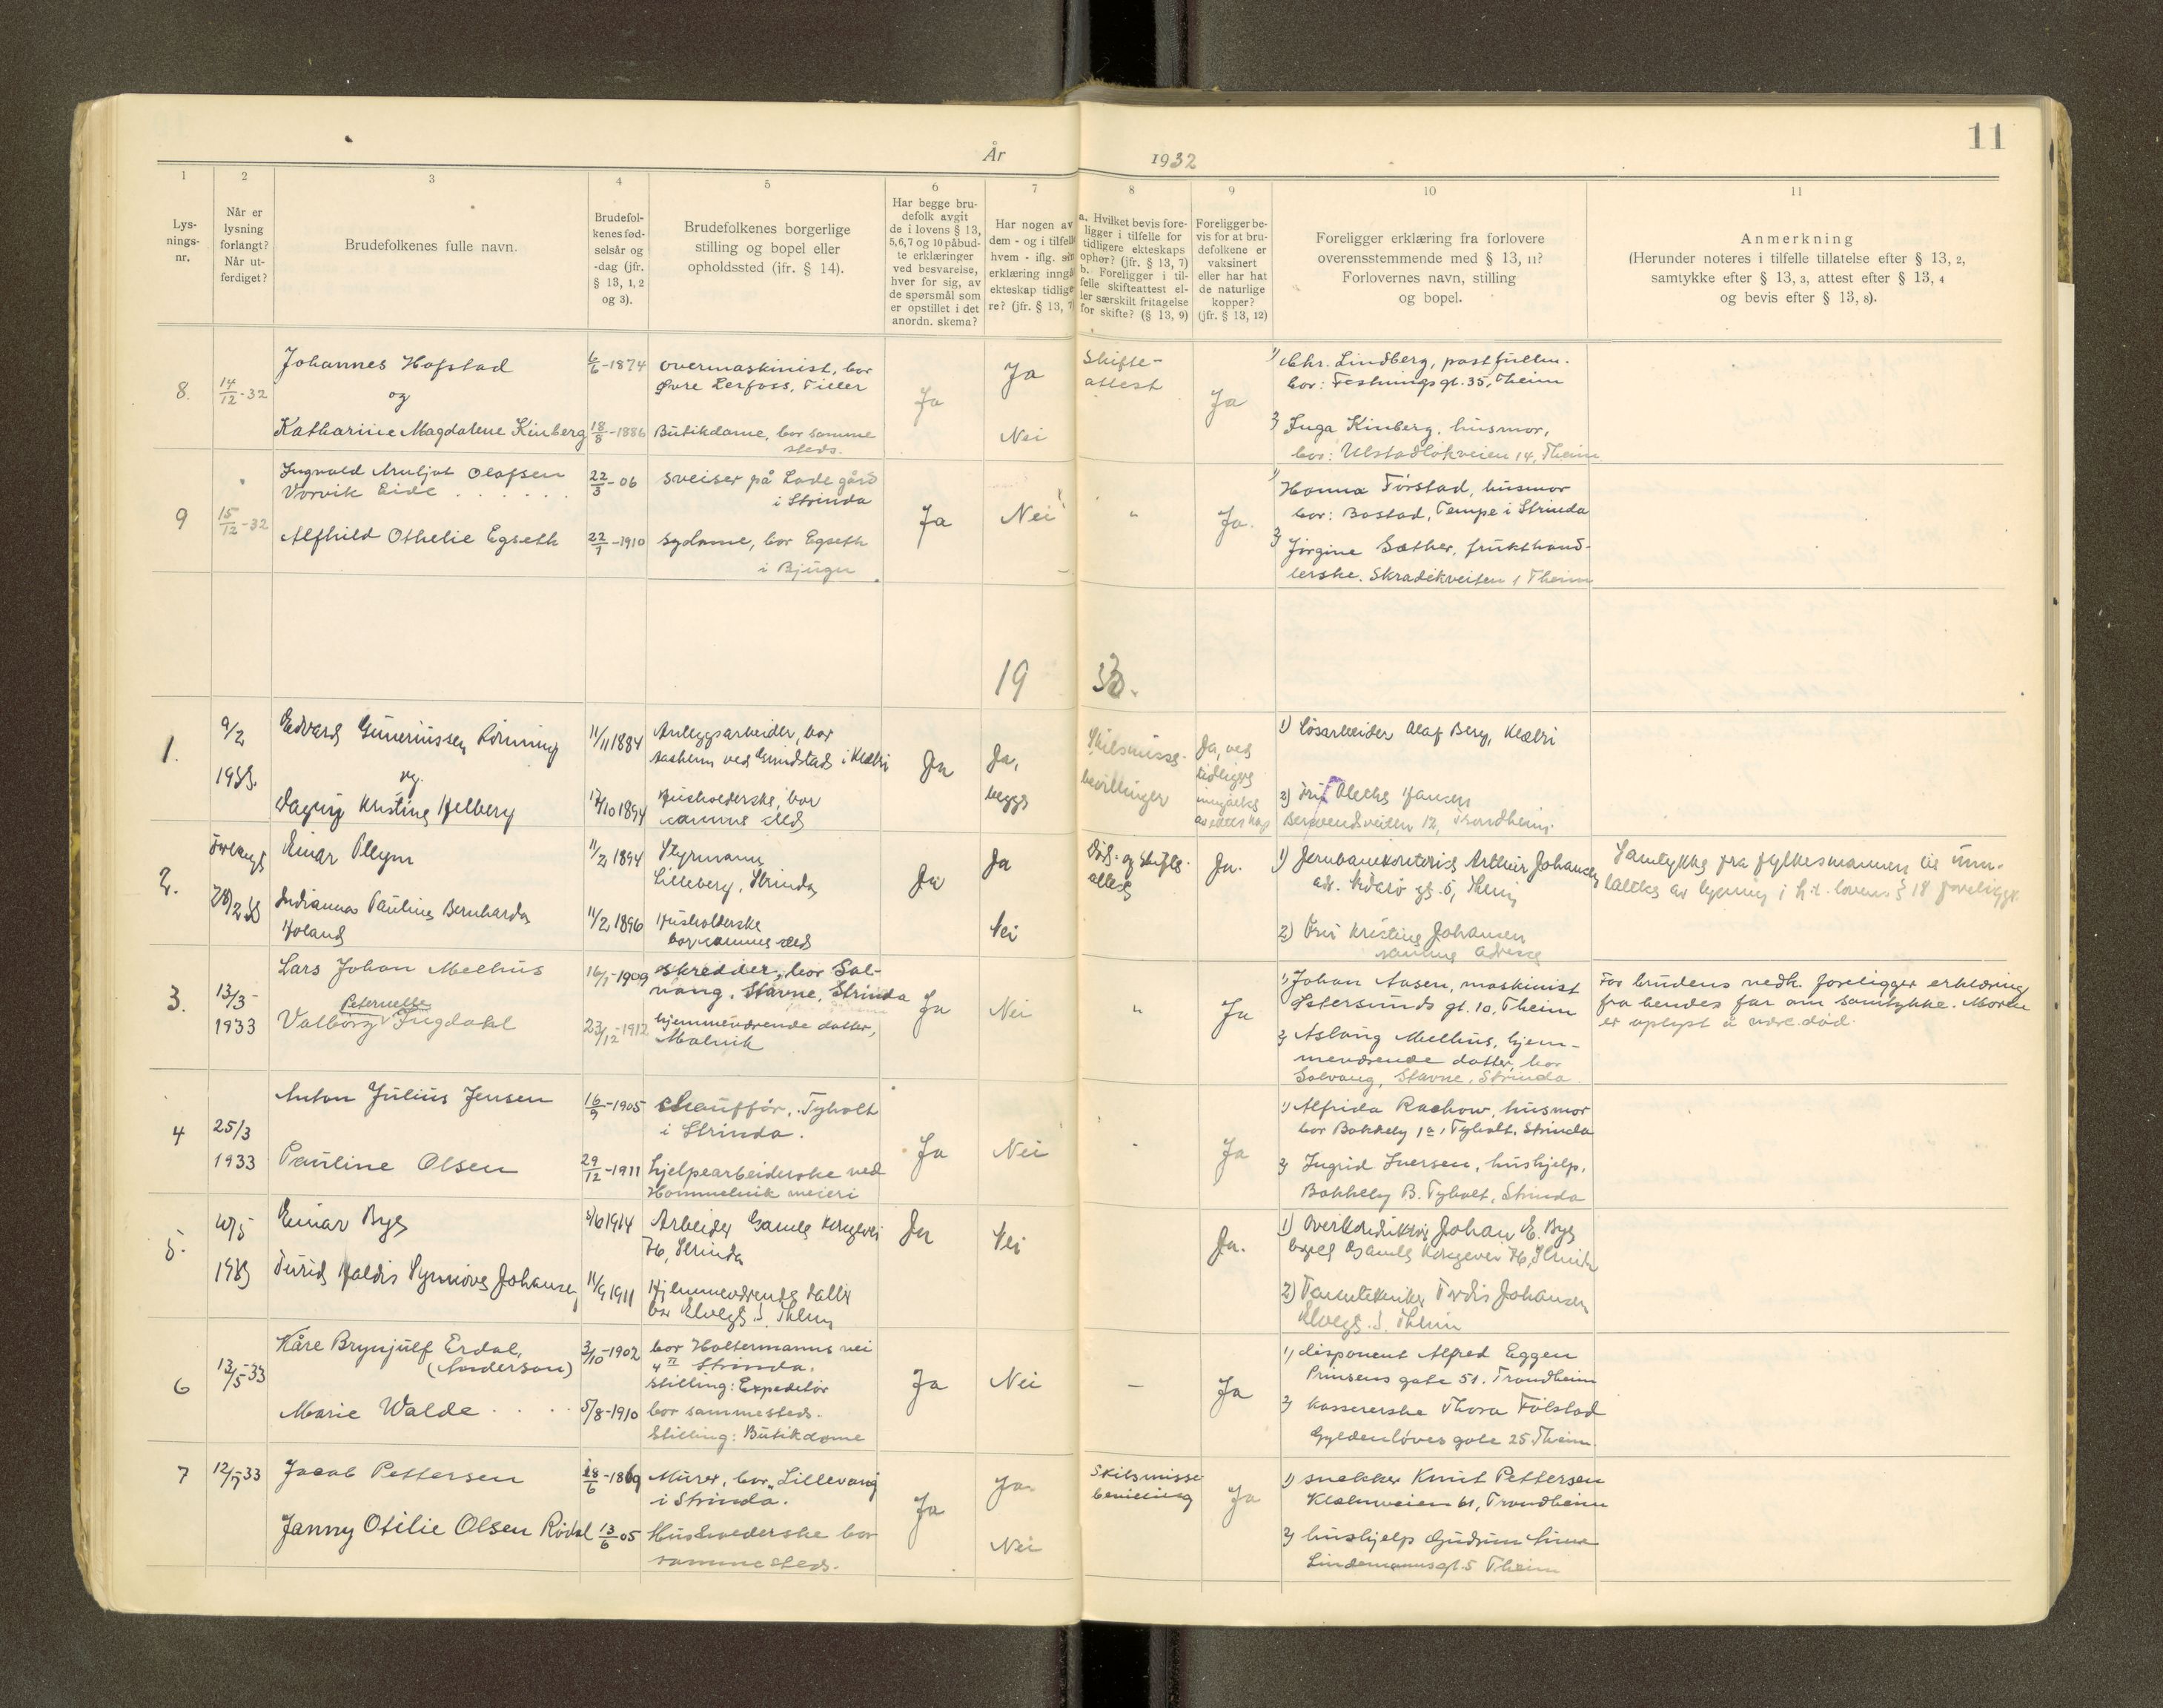 11
År 1932
1
2
3
4
5
6
7
8
9
10
11
Lys-
nings-
nr.
Når er
lysning
forlangt?
Når ut-
ferdiget?
Brudefolkenes fulle navn.
Brudefol-
kenes fød-
selsår og
-dag (jfr.
§ 13, 1, 2
og 3).
Brudefolkenes borgerlige
stilling og bopel eller
opholdssted (ifr. § 14).
Har begge bru-
defolk avgit
de i lovens § 13,
5,6,7 og 10 påbud-
te erklæringer
ved besvarelse,
hver for sig, av
de spørsmål som
er opstillet i det
anordn. skema?
Har nogen av
dem - og i tilfelle
hvem - iflg. sin
erklæring inngå
ekteskap tidlige-
re? (jfr. § 13, 7)
a. Hvilket bevis fore-
ligger i tilfelle for
tidligere ekteskaps
ophør? (jfr. § 13, 7)
b. Foreligger i til-
felle skifteattest el-
ler særskilt fritagelse
for skifte? (§ 13, 9)
Foreligger be-
vis for at bru-
defolkene er
vaksinert
eller har hat
de naturlige
kopper?
(jfr. § 13, 12)
Foreligger erklæring fra forlovere
overensstemmende med § 13, 11?
Forlovernes navn, stilling
og bopel.
Anmerkning
(Herunder noteres i tilfelle tillatelse efter § 13, 2,
samtykke efter § 13, 3, attest efter § 13, 4
og bevis efter § 13, 8).
8.
14/12-32
Johannes Hofstad
og
Katharine Magdalene Kinberg
6/6-1874
18/8-1886
overmaskinist, bor
Øvre Lerfoss, Tiller
Butikdame, bor samme
steds.
Ja
Ja
Nei
Skifte-
attest
Ja
1) Chr. Lindberg, postfullm.
bor: Festningsgt. 35, Theim
2) Inga Kinberg, husmor,
bor: Ulstadløkveien 14, Theim
9
15/12-32
Ingvald Arnljot Olafsen
Vorvik Eide
Alfhild Othelie Egseth
22/3-06
22/7-1910
sveiser på Lade gård
i Strinda
sydame, bor Egseth
i Bjugn
Ja
Nei
"
Ja.
1) Hanna Förstad, husmor
bor: Bostad, Tempe i Strinda
2) Jørgine Sæther, frukthand-
lerske. Skradikveiten 1 Theim
19 33.
1.
9/2
1933.
Edvard Guneriussen Rönning
og
Dagny Kristine Helberg
11/11 1884
17/10 1894
Anleggsarbeider, bor
ved Grindstad i Klæbu
Husholderske, bor
samme sted
Ja
Ja,
begge
Skilsmisse-
bevillinger
Ja, ved
tidligere
inngåelse
av ekteskap
1) Løsarbeider Olaf Berg, Klæbu
2) Fru Hansen
12, Trondheim.
2.
28/2 33
Einar
Pauline Bernharda
Holand
11/2 1894
11/2 1896
Styrmann
Lilleberg, Strinda
Husholderske
bor samme sted
Ja
Ja
Nei
Død- og skifte-
attest
Ja.
1) Jernbanekontorist Arthur Johansen
2) Fru Kristine Johansen
samme adresse
Samtykke fra fylkesmannen til unn-
latelse av lysning i h.t. lovens § 18 foreligger.
3.
13/3
1933
Lars Johan Melhus
Peternelle
Valborg Ingdahl
16/7-1909
23/12-1912
skredder, bor Sol-
vang, Stavne, Strinda
hjemmeværende datter,
Malvik
Ja
Nei
"
Ja
1) Johan Aasen, maskinist
Østersunds gt. 10, Theim
2) Aslaug Melhus, hjem-
meværende datter, bor
Solvang, Stavne, Strinda
For brudens vedk. foreligger erklæring
fra hendes far om samtykke. Moren
er oplyst å være død.
4
25/3
1933
Anton Julius Jensen
Pauline Olsen
16/9-1905
29/12-1911
Chauffør, Tyholt
i Strinda.
hjelpearbeiderske ved
Hommelvik meieri
Ja
Nei
Ja
1) Alfrida Rachow, husmor
bor Bakkely 1a, Tyholt, Strinda
2) Ingrid Iversen, hushjelp,
Bakkely B. Tyholt, Strinda
5.
Einar Bye
Turid Haldis Synnøve Johansen
5/6 1914
11/9 1911
Arbeider Gamle Kongevei
76, Strinda
Hjemmeværende datter
bor Elvegt. 5. Theim
Ja
Nei
Ja.
1) Overkonduktør Johan E. Bye
bopel Gamle Kongevei 76, Strinda
2) Tordis Johansen
Elvegt. 5. Theim
6
13/5-33
Kåre Brynjulf Erdal,
(Anderson)
Marie Walde
3/10-1902
5/8-1910
bor Holtermanns vei
4 II Strinda.
Stilling: Expeditør
bor sammesteds.
Stilling: Butikdame
Ja
Nei
—
Ja
1) disponent Alfred Eggen
Prinsens gate 51. Trondheim
2) kassererske Thora Følstad
Gyldenløves gate 25 Theim.
7
12/7 33
Jacob Pettersen
Janny Otilie Olsen Rödal
18/6-1869
13/6 05
Murer, bor „Lillevang
i Strinda.
Husholderske bor
sammesteds.
Ja
Ja
Nei
Skilsmisse
bevilling
Ja
1) snekker Knut Pettersen
61, Trondheim
2) hushjelp Gudrun
Lindemannsgt. 5 Theim